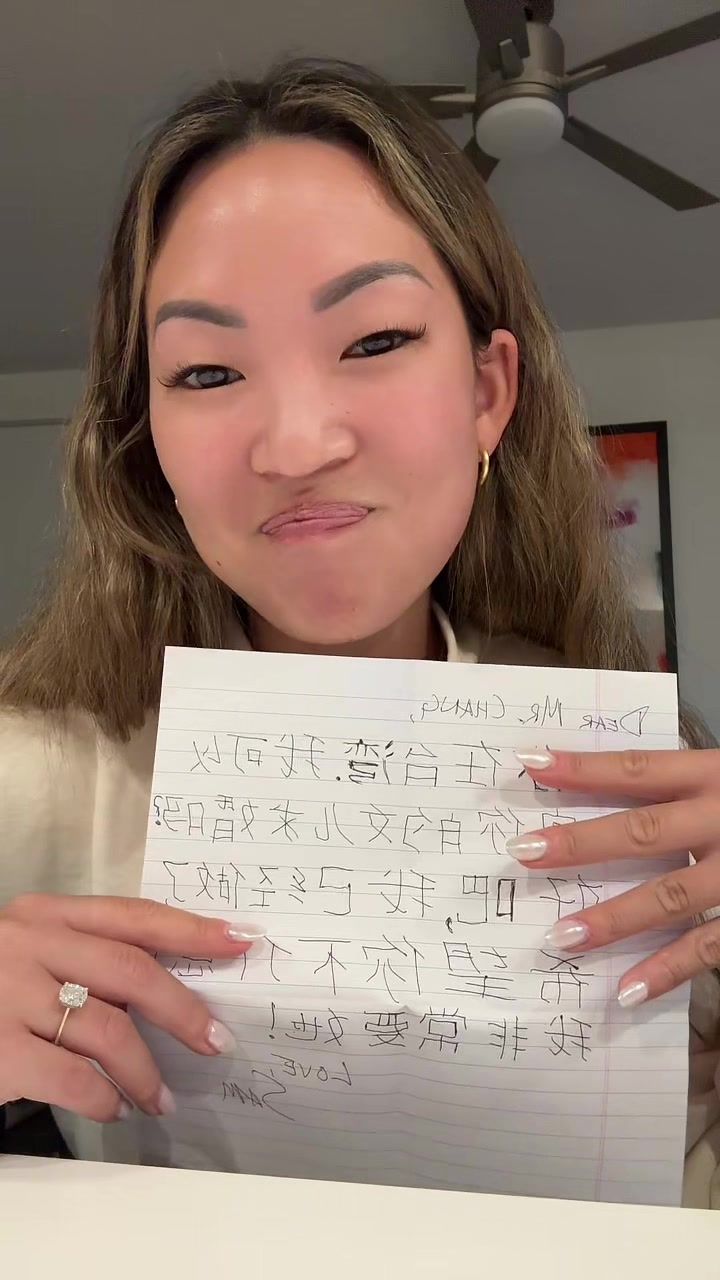 DEAR MR. CHANG,
在台湾. 我可以
你的女儿求婚吗?
好吧, 我已经做了
希望你不介
我非常要她!
LOVE,
SAM